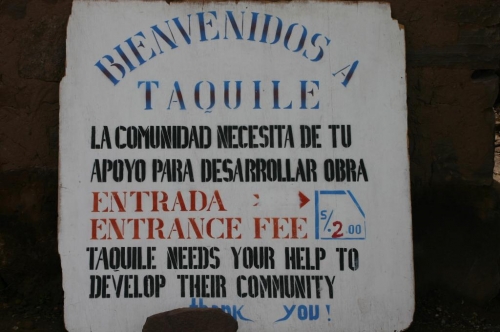 BIENVENIDOS A
TAQUILE
LA COMUNIDAD NECESITA DE TU
APOYO PARA DESARROLLAR OBRA
ENTRADA :
ENTRANCE FEE S/. 2.00
TAQUILE NEEDS YOUR HELP TO
DEVELOP THEIR COMMUNITY
thank you!